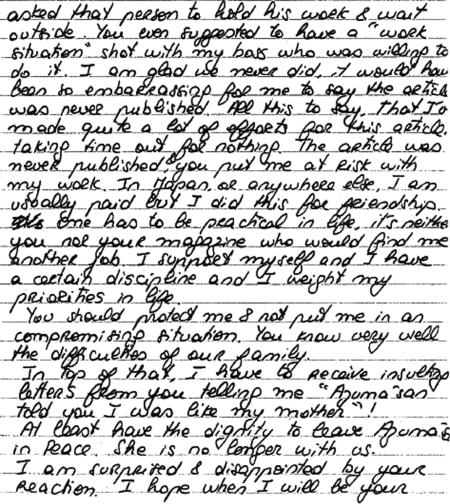 asked that person to hold his work & wait
outside. You even suggested to have a "work
situation" shot with my boss who was willing to
do it. I am glad we never did, it would have
been so embarrassing for me to say the article
was never published. All this to say, that I
made quite a lot of efforts for this article,
taking time out for nothing. The article was
never published & you put me at risk with
my work. In Japan, or anywhere else, I am
usually paid but I did this for friendship.
One has to be practical in life, it's neither
you nor your magazine who would find me
another job. I support myself and I have
a certain discipline and I weight my
priorities in life.
You should protect me & not put me in an
compromising situation. You know very well
the difficulties of our family.
In top of that, I have to receive insulting
letters from you telling me "Azuma-san
told you I was like my mother"!
At least have the dignity to leave Azuma-s
in Peace. She is no longer with us.
I am surprised & disappointed by your
Reaction. I hope when I will be your